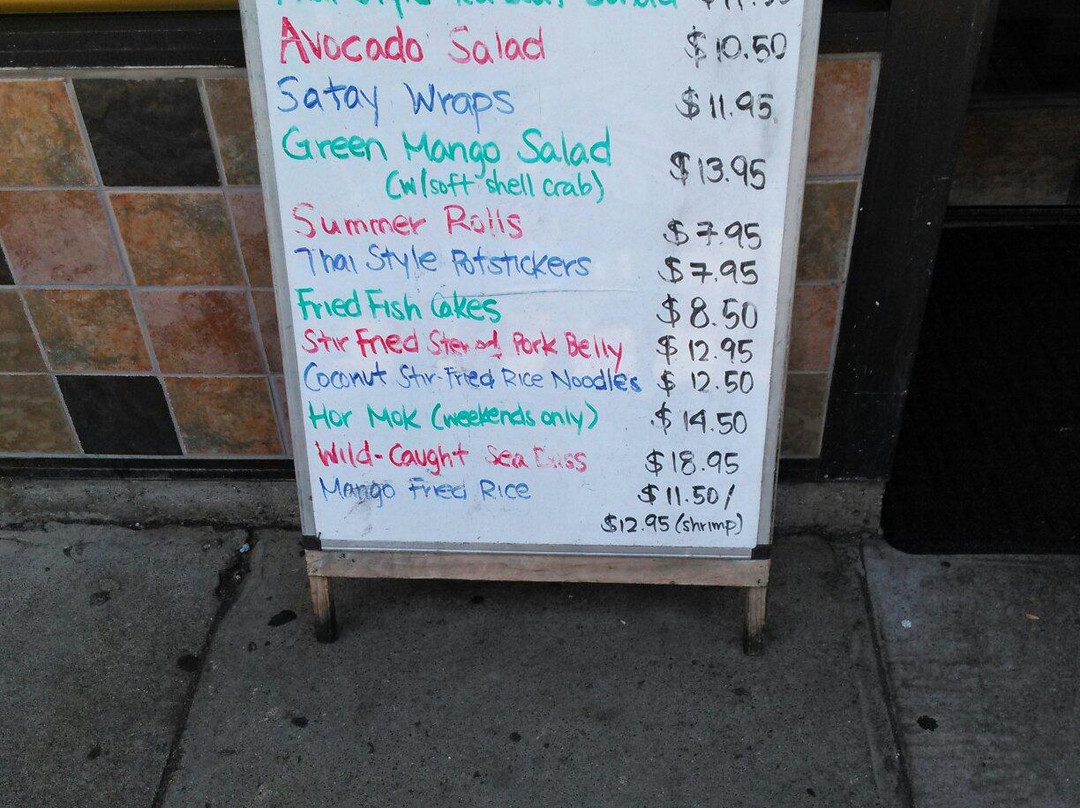 Style $11.95
Avocado Salad $10.50
Satay Wraps $11.95
Green Mango Salad
(w/soft shell crab) $13.95
Summer Rolls $7.95
Thai Style Potstickers $7.95
Fried Fish Cakes $8.50
Stir Fried Pork Belly $12.95
Coconut Stir-Fried Rice Noodles $12.50
Hor Mok (weekends only) $14.50
Wild-Caught Sea Bass $18.95
Mango Fried Rice $11.50/
$12.95 (shrimp)